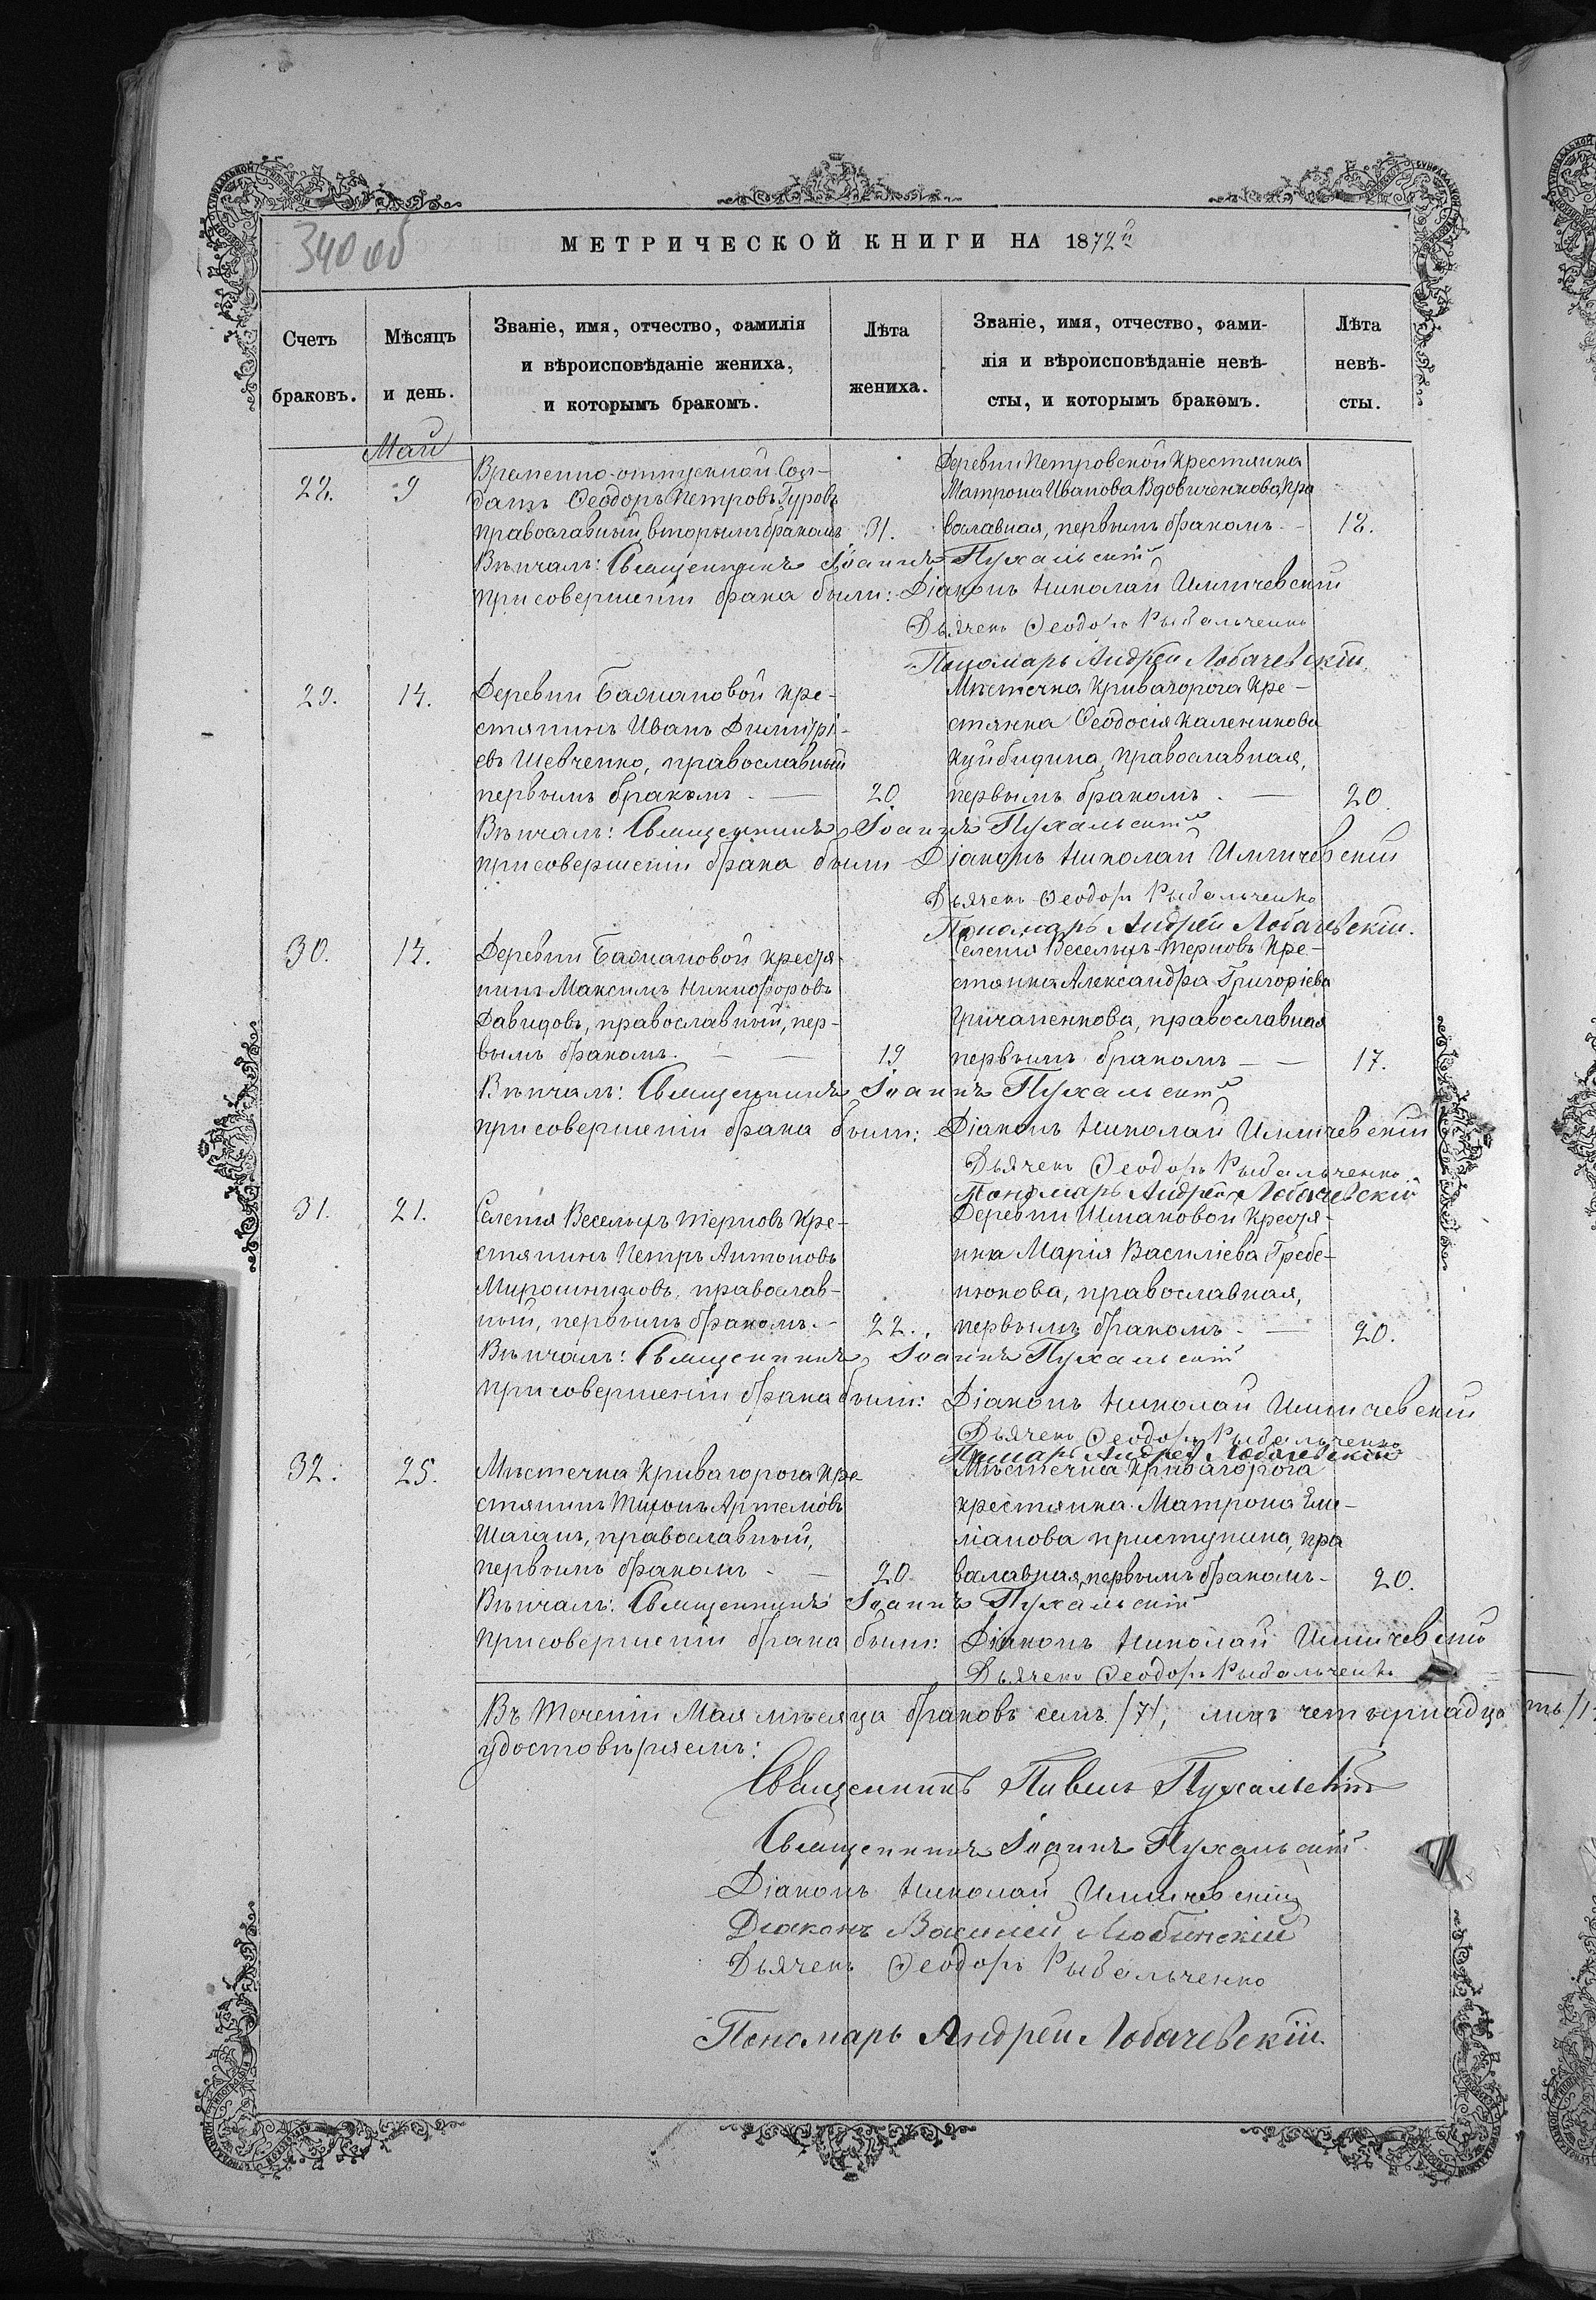 340 об
МЕТРИЧЕСКОЙ КНИГИ НА 1872й
Счетъ
браковъ.
Мѣсяцъ
и день.
Званіе, имя, отчество, фамилія
и вѣроисповѣданіе жениха,
и которымъ бракомъ.
Лѣта
жениха.
Званіе, имя, отчество, фами-
лія и вѣроисповѣданіе невѣ-
сты, и которымъ бракомъ.
Лѣта
невѣ-
сты.
Май
28. 9
Временно-отпускной Сол-
датъ Ѳеодоръ Петровъ Гуровъ
православный, вторымъ бракомъ 31.
Деревни Петровской крестянка
Матрона Иванова Вдовиченкова, пра
вославная, первымъ бракомъ. 18.
Вѣнчалъ: Священникъ Іоаннъ Пухальскій
При совершеніи брака были: Діаконъ Николай
Дьячекъ Ѳеодоръ Рыбальченко
Пономарь Андрей Лобачевскій.
29. 14.
Деревни Баснановой кре-
стянинъ Иванъ Димитрі-
евъ Шевченко, православный
первымъ бракомъ. — 20.
Мѣстечка Кривагорога Кре-
стянка Ѳеодосія Каленикова
Куйбидина, православная,
первымъ бракомъ. — 20.
Вѣнчалъ: Священникъ Іоаннъ Пухальскій
При совершеніи брака были Діаконъ Николай
Дьячекъ Ѳеодоръ Рыбальченко
Пономарь Андрей Лобачевскій.
30. 14.
Деревни Баснановой крестя-
нинъ Максимъ Никифоровъ
Давидовъ, православный, пер-
вымъ бракомъ. — — 19
Селенія Веселыхъ-Терновъ Кре-
стянка Александра Григоріева
православная
первымъ бракомъ — — 17.
Вѣнчалъ: Священникъ Іоаннъ Пухальскій
При совершеніи брака были: Діаконъ Николай
Дьячекъ Ѳеодоръ Рыбальченко
Пономарь Андрей Лобачевскій
31. 21.
Селенія Веселыхъ Терновъ Кре-
стянинъ Петръ Антоновъ
Мирошниковъ, православ-
ный, первымъ бракомъ. — 22.
Деревни Шмаковой Крестя-
нка Марія Василіева Гребе-
нюкова, православная,
первымъ бракомъ. — 20.
Вѣнчалъ: Священникъ Іоаннъ Пухальскій
При совершеніи брака были: Діаконъ Николай
Дьячекъ Ѳеодоръ Рыбальченко
Андрей Лобачевскій
32. 25.
Мѣстечка Кривагорога Кре-
стянинъ Тихонъ Артемовъ
православный,
первымъ бракомъ. — 20
Мѣстечка Кривагорога
крестянка Матрона Еме-
ліанова Приступина, пра
валавная, первымъ бракомъ. 20.
Вѣнчалъ: Священникъ Іоаннъ Пухальскій
При совершеніи брака были: Діаконъ Николай
Дьячекъ Ѳеодоръ Рыбальченко
Въ теченіи Мая мѣсяца браковъ семь /7/, лицъ четырнадца ть /1
удостовѣряемъ:
Священникъ Павелъ Пухальскій
Священникъ Іоаннъ Пухальскій
Діаконъ Николай
Діаконъ Василий
Дьячекъ Ѳеодоръ Рыбальченко
Пономарь Андрей Лобачевскій.